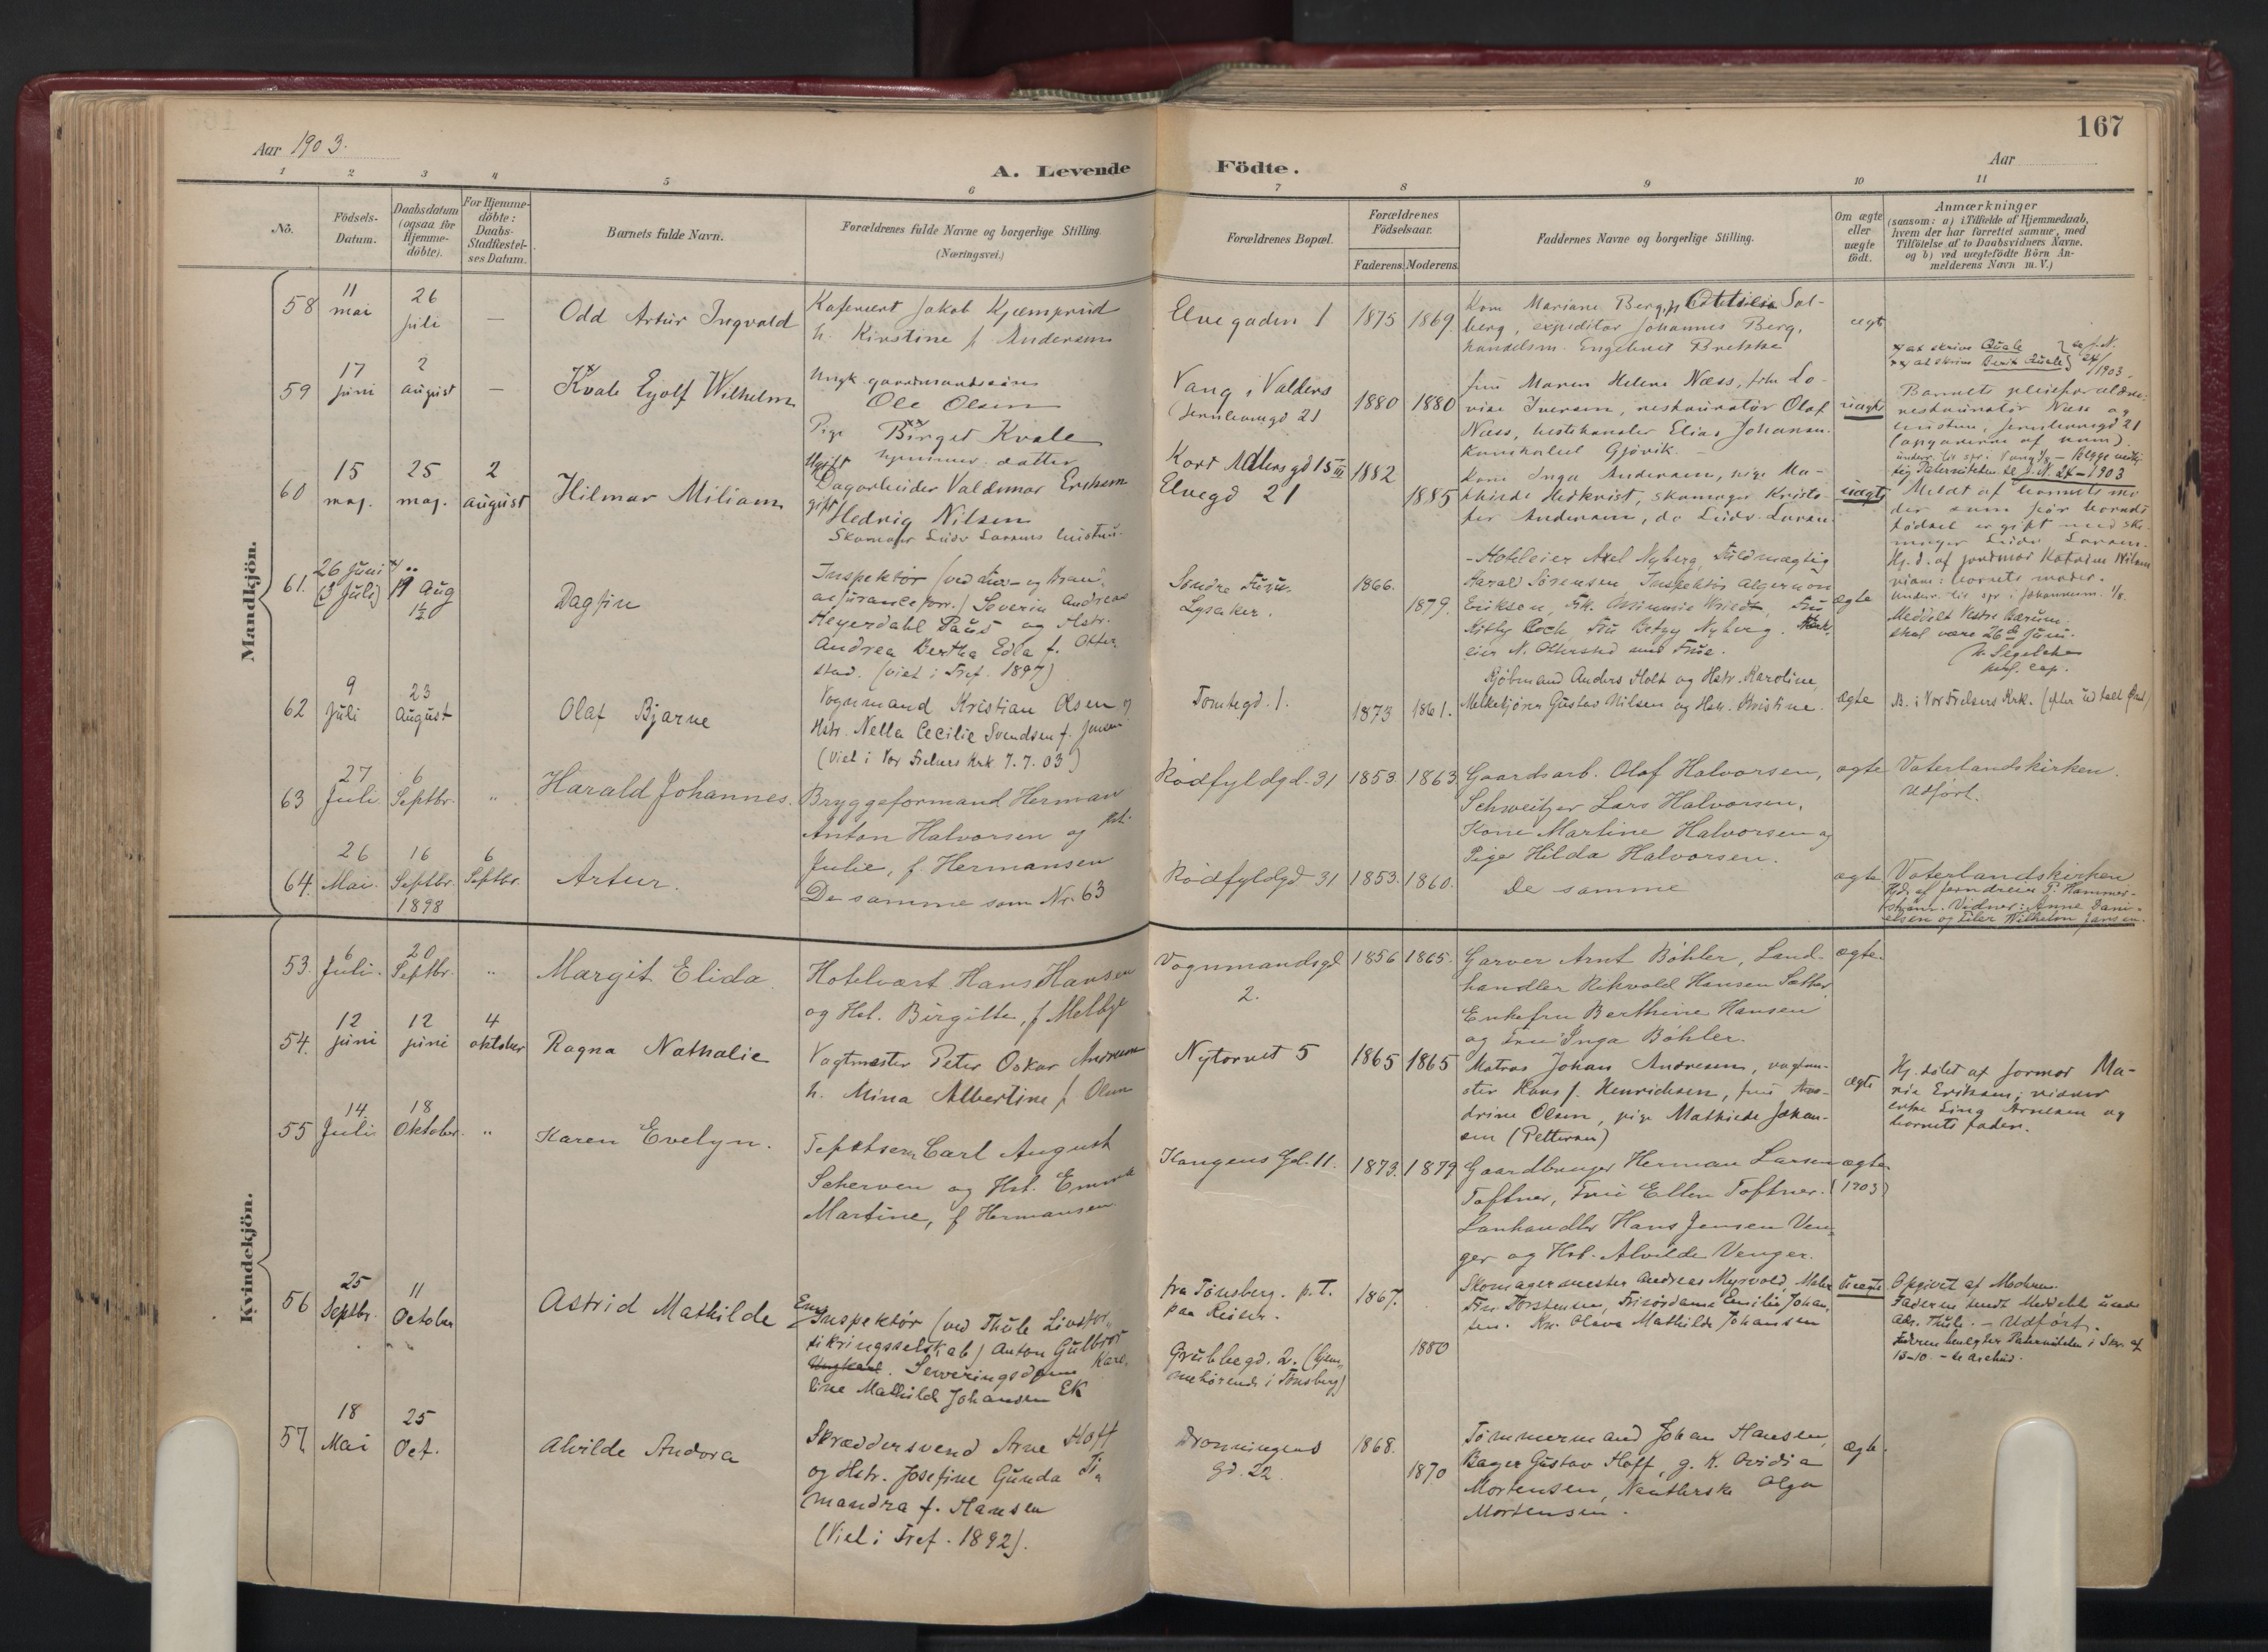 167
Aar 1903.
Aar
A. Levende Födte.
1 2 3 4 5 6 7 8 9 10 11
Nō.
Födsels-Datum.
Daabsdatum (ogsaa for Hjemme-döbte).
For Hjemme-döbte: Daabs-Stadfæstel-ses Datum.
Barnets fulde Navn.
Forældrenes fulde Navne og borgerlige Stilling.
(Næringsvei.)
Forældrenes Bopæl.
Forældrenes Födselsaar.
Faderens. Moderens.
Faddernes Navne og borgerlige Stilling.
Om ægte eller uægte födt.
Anmærkninger
(saasom: a) i Tilfælde af Hjemmedaab,
hvem der har forrettet samme, med
Tilföielse af to Daabsvidners Navne.
og b) ved uægtefödte Börn An-
melderens Navn m. V.)
Mandkjön.
58 11 mai 26 juli — Odd Artur Ingvald
Kafevert Jakob Kjemprud
h. Kirstine f Andersen
Elvegaden 1 1875 1869
Kone Mariane Berg, Sol-
berg, expeditør Johannes Berg,
handelsm. Engebret Brekke
ægte
59 17 juni 2 august — Kvale Eyolf Wilhelm
Ungk. gaardmandssøn
Ole Olsen
Pige Birget Kvale
datter
Vang i Valders
21
1880 1880
Fru Maren Helene Næss, frk Lo-
vise Iversen, restauratør Olaf
Næss, hestehandler Elias Johansen.
Gjøvik.
uægte
at skrive Quale
at skrive Quale
1903
Barnets pleieforældre:
restauratør Næss og
hustru, 21
Se J.N. 24-1903
60 15 maj. 25 maj. 2 august Hilmar Miliam
Ugift
Dagarbeider Valdemar
gift Hedvig Nilsen
Skomager Ludv Larsens hustru
Kort Adlersgd 15 III
Elvegd 21
1882 1885
Kone Inga Andersen, pige Ma-
thilde Hedkvist, skomager Kristo-
fer Andersen, do Ludv. Larsen
uægte
Meldt af barnets mo
der som før barnets
fødsel er gift med sko-
mager Ludv Larsen.
Hj. d. af jordmor Katrine Nilsen
barnets moder.
61. 26 Juni (3 Juli) 19 Aug Dagfin
Inspektør (ved Liv- og Bran-
assuranceforr.) Severin Andreas
Heyerdahl Paus og Hstr.
Andrea Bertha Edla f. Olter-
stad. (viet i Tref. 1897)
Søndre
Lysaker.
1866. 1879.
-Hoteleier Axel Nyberg, Fuldmægtig
Harald Sørensen Inspektør Algernon
Eriksen, Frk. Fru
Kitty Koch, Fru Betzy Nyberg.
eier N. Olterstad med Frue.
ægte
Meddelt Vestre Bærum:
skal være 26de Juni.
pers. cap.
62 9 Juli 23 August Olaf Bjarne
Vognmand Kristian Olsen og
Hstr. Nella Cecilie Svendsen f. Jensen
(Viet i Vor Frelsers Krk 7.7.03)
Tomtegd. 1. 1873 1861.
Kjøbmand Anders Holt og Hstr. Karoline,
Melkekjører Gustav Nilsen og Hstr. Kristine.
ægte
D. i Vor Frelsers Krk.
63 27 Juli 6 Septbr. " Harald Johannes.
Bryggeformand Herman
Anton Halvorsen og Hst.
Julie, f Hermansen
Rødfyldgd. 31 1853. 1863
Gaardsarb. Olaf Halvorsen,
Schweitzer Lars Halvorsen,
Kone Martine Halvorsen og
Pige Hilda Halvorsen.
ægte
Vaterlandskirken.
Udført.
64. 26 Mai. 16 Septbr. 1898 6 Septbr. Artur.
De samme som Nr. 63
Rødfyldgd 31 1853. 1860.
De samme
ægte
Vaterlandskirken
Vidner: Anne Dani-
elsen og Eiler Wilhelm Jansen.
Kvindekjön.
53. 6 Juli. 20 Septbr. " Margit Elida.
Hotelvært Hans Hansen
og Hst. Birgitte, f Melby
Vognmandsgd 2.
1856 1865.
Garver Arnt Bøhler, Land-
handler Rikvold Hansen Sæther
Enkefru Berthine Hansen
og Fru Inga Bøhler.
ægte.
54. 12 juni 12 juni 4 oktober Ragna Nathalie
Vagtmester Peter Oskar Andresen
h. Mina Albertine f Olsen
Nytorvet 5 1865 1865
Matros Johan Andresen, vagtme-
ster Hans J. Henrichsen, fru An-
drine Olsen, pige Mathilde Johan-
sen (Pettersen)
ægte
Hj. døbt af jormor Ma-
rie Eriksen; vidner
enke Lina Arnesen og
barnets fader.
55 14 Juli 18 Oktober. " Karen Evelyn.
Carl August
Scherven og Hst. Emma
Martine, f Hermansen.
Kongens Gd. 11. 1873. 1879
Gaardbruger Herman Larsen
Toftner, Fru Ellen Toftner.
Lanhandler Hans Jensen Ven-
ger og Hst. Alvilde Venger.
ægte
(1903)
56 25 Septbr. 11 October Astrid Mathilde
Inspektør (ved Thule Livsfor-
sikringsselskab) Anton Gulbrør
Ungkarl. Serveringsdame Karo-
line Mathilde Johansen EK
fra Tønsberg. p. T.
paa Reiser.
Grubbegd. 2. (hjem-
mehørende i Tønsberg)
1867. 1880
Skomagermester Andreas Myrvold, Maler
Torstensen, Frisørdame Emilie Johan-
sen. Olava Mathilde Johansen
uægte
Opgivet af Moderen.
Faderen sendt Meddelelse under
Adr. Thule. - Udført.
Faderen benegter Paterniteten i Skr. af
13-10. - se Arkiv.
57. 18 Mai 25 Oct. Alvilde Andora
Skræddersvend Arne Hoff
og Hstr. Josefine Gunda Ti-
mandra f. Hansen
(Viet i Tref. 1892).
Dronningens
Gd. 22.
1868. 1870
Tømmermand Johan Hansen,
Bager Gustav Hoff, g. K. Ovidia
Mortensen, Olga
Mortensen.
ægte.